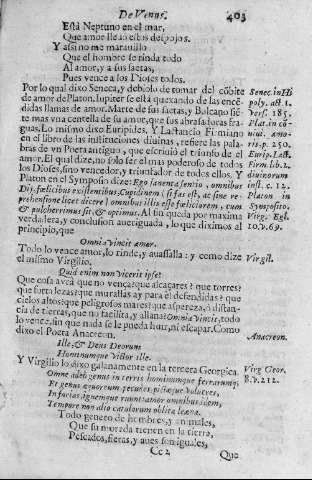 De Venus. 403
Está Neptuno en el mar,
Que amor llevò estos despojos.
Y assi no me marauillo
Que el hombre se rinda todo
Al amor, y a sus saetas,
Pues vence a los Dioses todos.
Por lo qual dixo Seneca, y debiolo de tomar del cõbite
de amor de Platon. Iupiter se està quexando de las ence-
didas llamas de amor. Marte de sus saetas, y Bulcano siẽ-
te mas vna centella de su amor, que sus abrasadoras fra-
guas. Lo mismo dixo Euripides. Y Lactancio Firmiano
en el libro de las instituciones diuinas, refiere las pala-
bras de vn Poeta antiguo, que escriuiò el triunfo de el
amor. El qual dize, no solo ser el mas poderoso de todos
los Dioses, sino vencedor, y triunfador de todos ellos. Y
Platon en el Symposio dize: Ego sane assentio, omnibus
Dijs fœlicibus existentibus, Cupidinem (si fas est, ac sine re-
prehensione licet dicere) omnibus illis esse fœliciorem, cum
& pulcherrimus sit, & optimus. Al fin queda por maxima
verdadera, y conclusion aueriguada, lo que diximos al
principio, que
Omnia vincit amor.
Todo lo vence amor, lo rinde, y auassalla: y como dize
el mismo Virgilio.
Quid enim non vicerit ipse?
Que cosa avrà que no vença? que alcaçares? que torres?
que fortalezas? que murallas ay para èl defendidas? que
cielos altos? que peligrosos mares? que aspereza, ò distan-
cia de tierras, que no facilita, y allana? Omnia vincit, todo
lo vence, sin que nada se le pueda huir, ni escapar. Como
dixo el Poeta Anacreon.
Ille, & Deus Deorum
Hominumque victor ille.
Y Virgilio lo dixo galanamente en la tercera Georgica.
Omne adeò genus in terris hominumque ferrarumq;
Et genus æquoreum pecudes pictæque volucres,
In furias ignemque ruunt: amor omnibus idem,
Tempore non alio catulorum oblita leæna.
Todo genero de hombres, y animales,
Que su morada tienen en la tierra,
Pescados, fieras, y aues son iguales,
Cc 2 Que
Senec. in Hi
poly. act. 1.
vers. 185.
Plat. in cõ-
uiui. amo-
ris. p. 250.
Eurip. Lact.
Firm. lib. 1.
diuinorum
inst. c. 12.
Platon in
Symposio.
Virg. Egl.
10. v. 69.
Virgil.
Anacreon.
Virg. Geor.
v. 212.